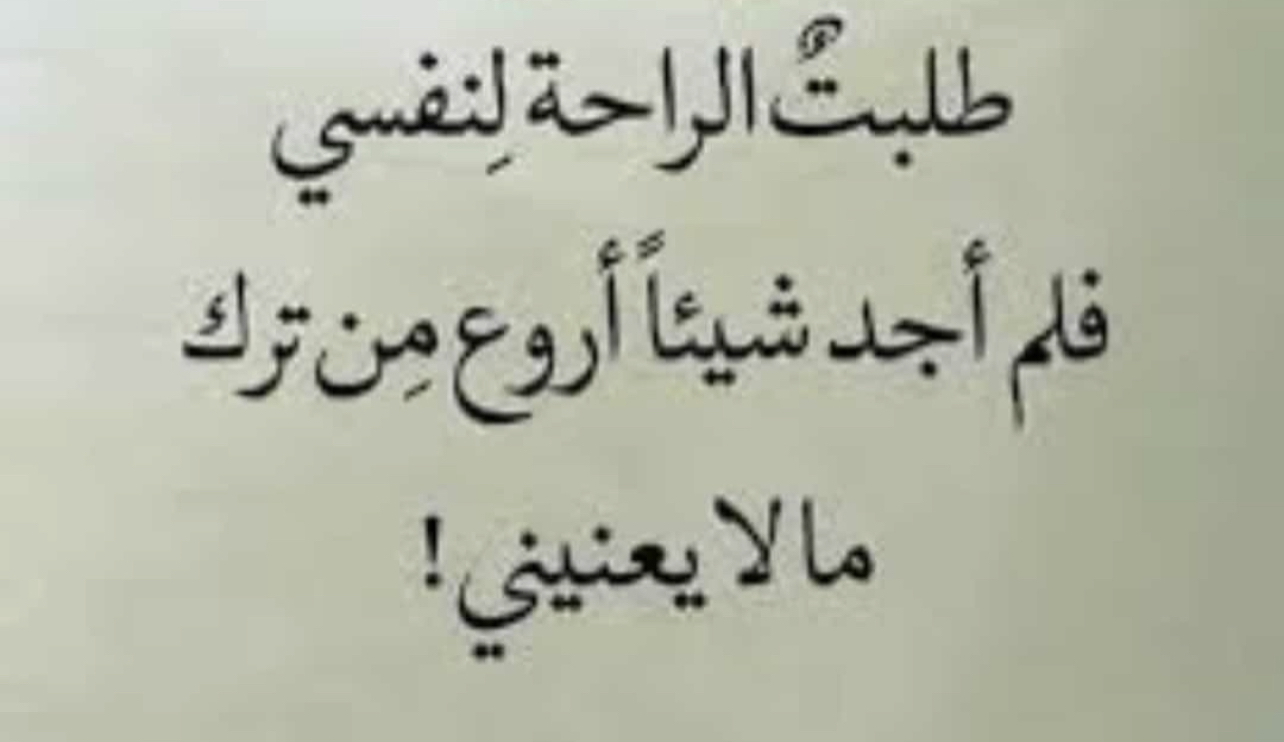 طلبتٌ الراحة لِنفسي
فلم أجد شيئاً أروع مِن ترك
ما لا يعنيني !